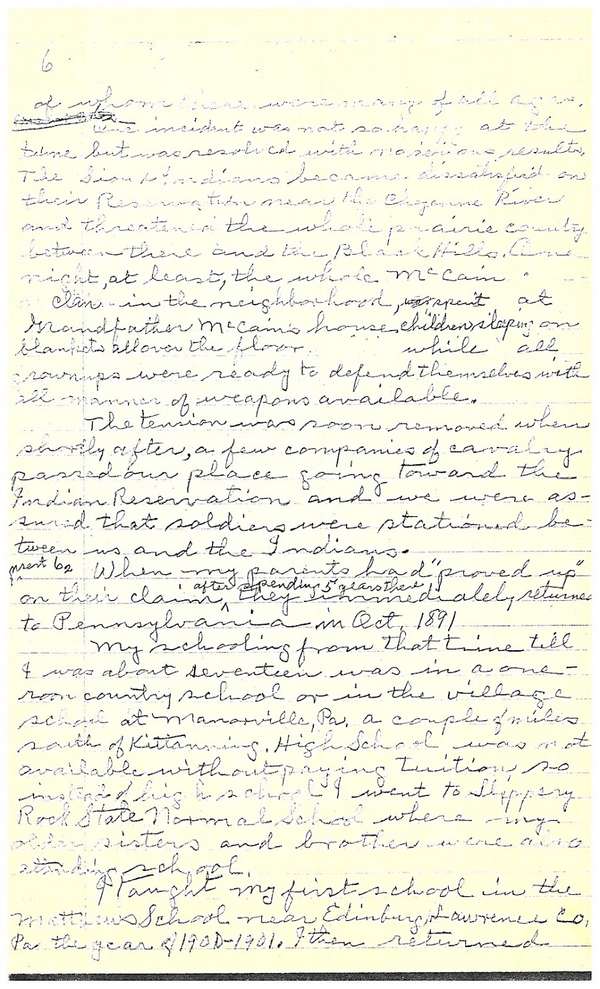 6
of whom there were many of all ages.
One incident was not so happy at the
time but was resolved with no serious results.
The Sioux Indians became dissatisfied on
their Reservation near the Cheyenne River
and threatened the whole prairie county
between there and the Black Hills. One
night, at least, the whole McCain
clan in the neighborhood, spent at
Grandfather McCain's house, children sleeping on
blankets all over the floor while all
grownups were ready to defend themselves with
all manner of weapons available.
The tension was soon removed when
shortly after, a few companies of cavalry
passed our place going toward the
Indian Reservation and we were as-
sured that soldiers were stationed be-
tween us and the Indians.
insert 6a When my parents had "proved up"
after spending 5 years there
on their claim, they immediately returned
to Pennsylvania in Oct, 1891
My schooling from that time till
I was about seventeen was in a one-
room country school or in the village
school at Manorville, Pa. a couple of miles
south of Kittanning. High School was not
available without paying tuition, so
instead of high school I went to Slippery
Rock State Normal School where my
older sisters and brother were also
attending school.
I taught my first school in the
Matthews School near Edinburg, Lawrence Co,
Pa the year of 1900-1901. I then returned